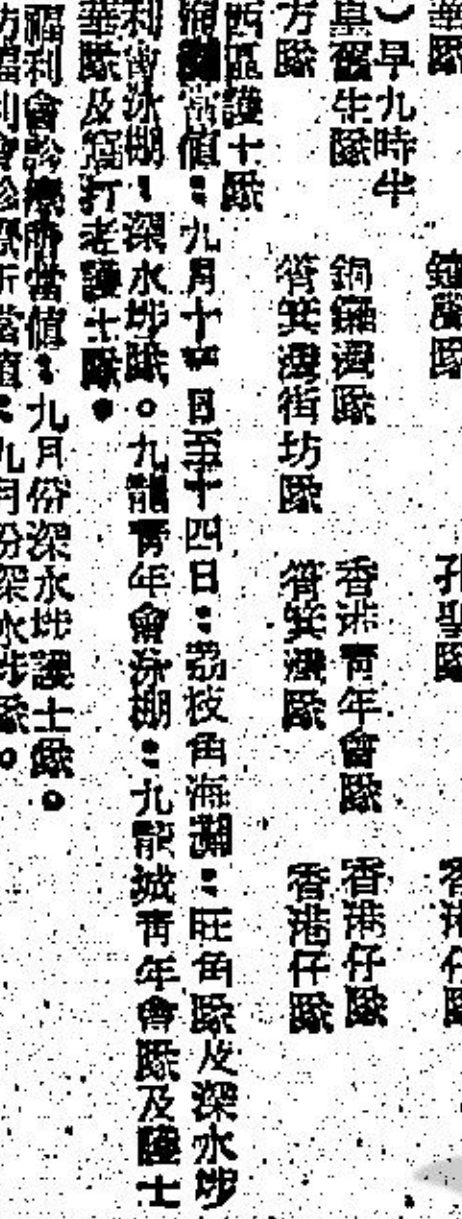 華隊　鐘聲隊　孔聖隊　香港仔隊
）早九時半
皇醫生隊　銅鑼灣隊　香港青年會隊　香港仔隊
方隊　筲箕灣街坊隊　筲箕灣隊　香港仔隊
西區護士隊
當值：九月十四日至十四日：荔枝角海灘：旺角隊及深水埗
利會泳棚：深水埗隊。九龍青年會泳棚：九龍城青年會隊及
華隊及窩打老護士隊。
福利會診療所當值：九月份深水埗護士隊。
坊福利會診療所當值：九月份深水埗隊。